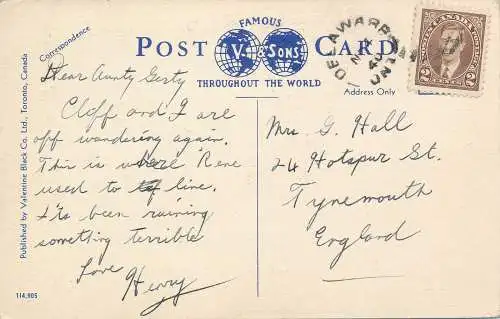 FAMOUS
POST V. & SONS CARD
THROUGHOUT THE WORLD
Correspondence
Address Only
DELAWARE
ONT
CANADA
2 2
Dear Aunty Gerty
Cliff and I are
off wandering again.
This is where Rene
used to live.
It's been raining
something terrible
Love
Henry
Mrs. G. Hall
24 Hotspur St.
Tynemouth
England
Published by Valentine Black Co. Ltd., Toronto, Canada
114,905